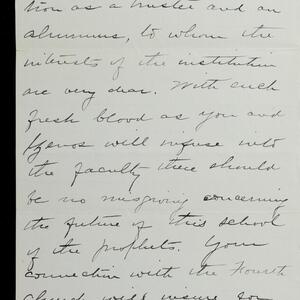 tion as a trustee and an
alumnus, to whom the
interests of the institution
are very dear. With such
fresh blood as you and
Zenos will infuse into
the faculty there should
be no misgiving concerning
the future of this school
of the prophets. Your
connection with the Fourth
church will insure you